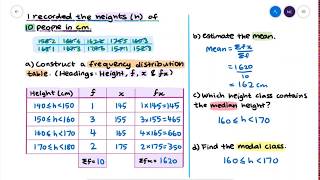 I recorded the heights (h) of
10 people in cm.
a) Construct a frequency distribution
table. (Headings: Height, f, x & fx)
Height (cm) f x fx
140≤h<150 1 145 1×145=145
150≤h<160 3 155 3×155=465
160≤h<170 4 165 4×165=660
170≤h<180 2 175 2×175=350
Σf=10 Σfx=1620
b) Estimate the mean.
Mean = Σfx
Σf
= 1620
10
= 162 cm
c) Which height class contains
the median height?
160≤h<170
d) Find the modal class.
160≤h<170